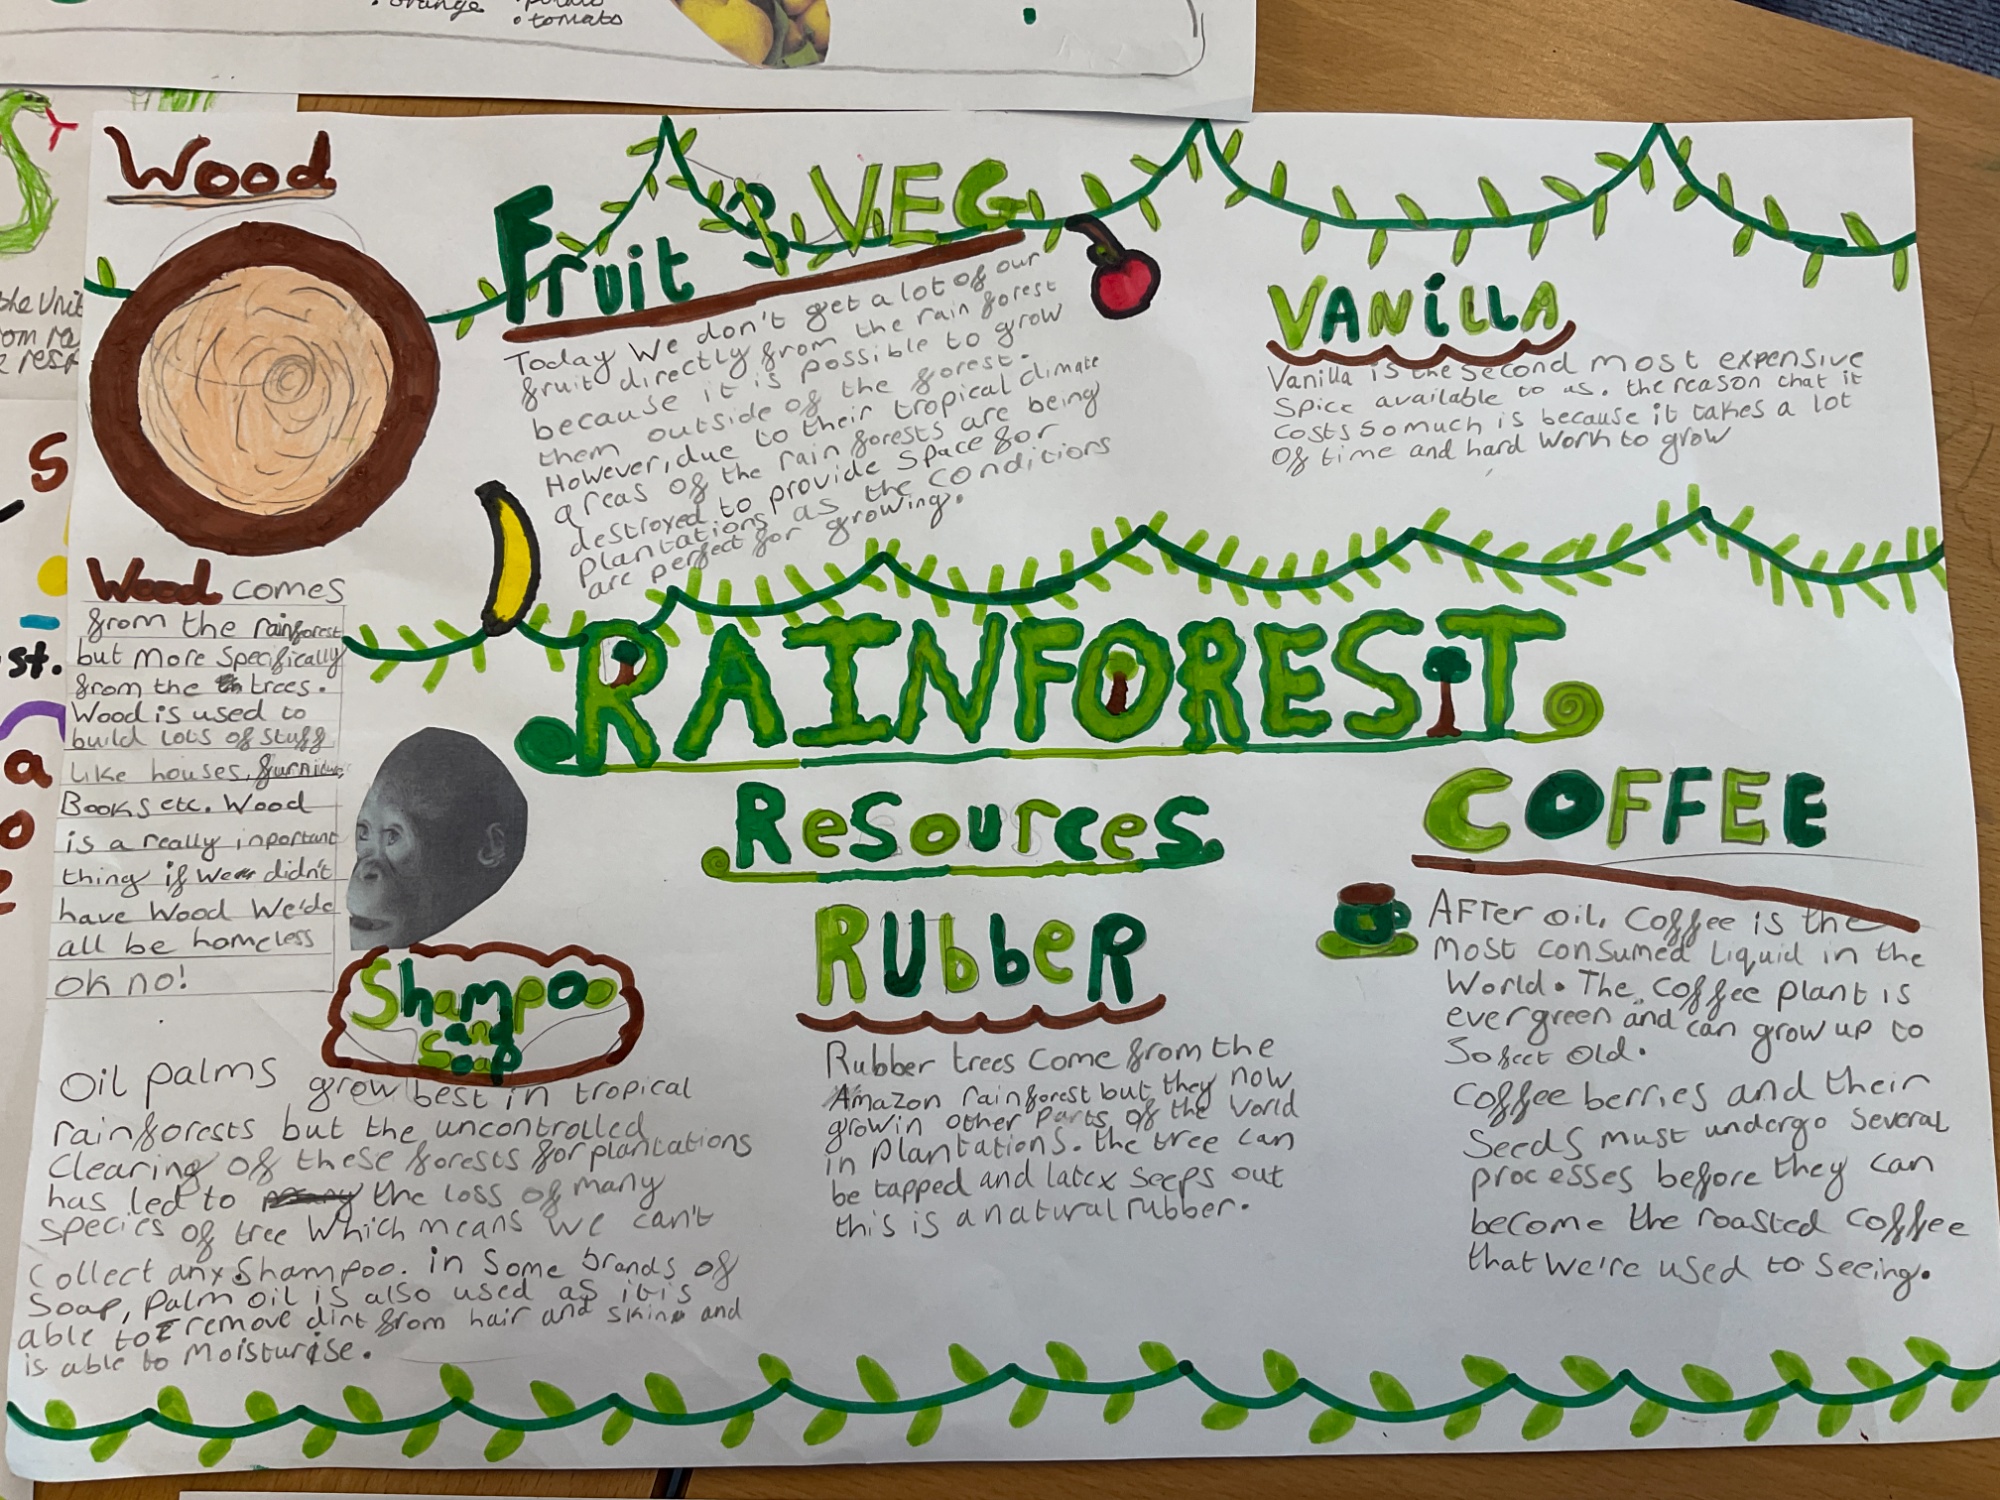 orange
tomato
Wood
Wood comes
from the rainforest
but more specifically
from the trees.
Wood is used to
build lots of stuff
like houses, furniture,
Books etc. Wood
is a really inportant
thing if we didn't
have Wood We'de
all be homeless
oh no!
Fruit & VEG
Today We don't get a lot of our
fruit directly from the rain forest
because it is possible to grow
them outside of the forest.
However, due to their tropical climate
areas of the rain forests are being
destroyed to provide Space for
plantations as the conditions
are perfect for growing.
VANiLLA
Vanilla is the second most expensive
Spice available to us. the reason that it
costs so much is because it takes a lot
of time and hard work to grow
RAINFOREST
Resources
Shampoo
and
Soap
Oil palms grow best in tropical
rainforests but the uncontrolled
Clearing of these forests for plantations
has led to the loss of many
species of tree which means we can't
Collect any Shampoo. in Some brands of
Soap, palm oil is also used as it is
able to remove dirt from hair and skin and
is able to Moisturise.
RUbbeR
Rubber trees come from the
Amazon rainforest but they now
grow in other Parts of the World
in Plantations. the tree can
be tapped and latex seeps out
this is a natural rubber.
COFFEE
AFTer oil, Coffee is the
most consumed Liquid in the
World. The coffee plant is
evergreen and can grow up to
30 feet Old.
Coffee berries and their
Seeds must undergo several
processes before they can
become the roasted coffee
that we're used to seeing.
the Unit
st.